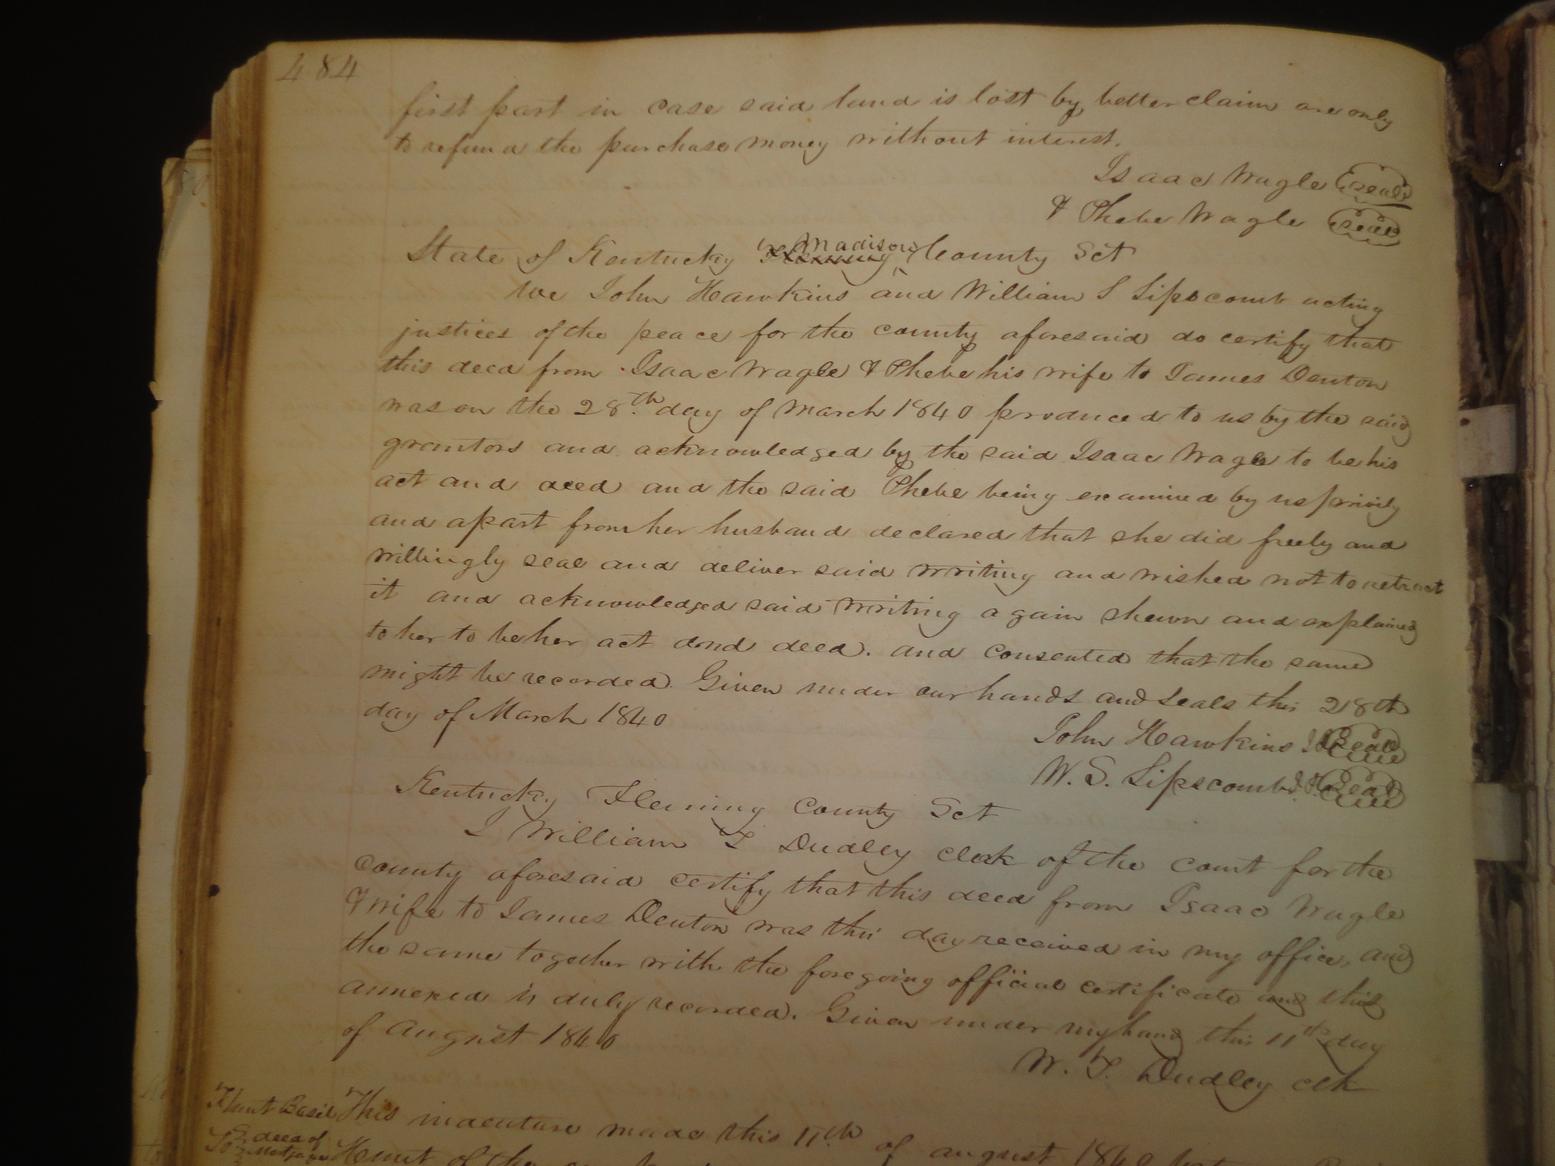 484
first part in case said land is lost by better claim are only
to refund the purchase money without interest.
Isaac Wagle seal
& Phebe Wagle seal
State of Kentucky Madison County Sct
We John Hawkins and William S Lipscomb acting
justices of the peace for the county aforesaid do certify that
this deed from Isaac Wagle & Phebe his wife to James Denton
was on the 28th day of March 1840 produced to us by the said
grantors and acknowledged by the said Isaac Wagle to be his
act and deed and the said Phebe being examined by us privily
and apart from her husband declared that she did freely and
willingly seal and deliver said writing and wished not to retract
it and acknowledged said writing again shewn and explained
to her to be her act and deed. and consented that the same
might be recorded. Given under our hands and seals this 28th
day of March 1840
John Hawkins Seal
W. S. Lipscomb Seal
Kentucky Fleming County Sct
I William T Dudley clerk of the court for the
county aforesaid certify that this deed from Isaac Wagle
& wife to James Denton was this day received in my office, and
the same together with the foregoing official certificate and this
annexed is duly recorded. Given under my hand this 11th day
of August 1840
W. T. Dudley clk
Hunt Basil This indenture made this 11th of august 1840
To deed of Mortgage Hunt of the